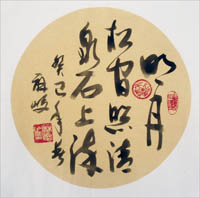 明月
松間照清
泉石上流
癸巳年春